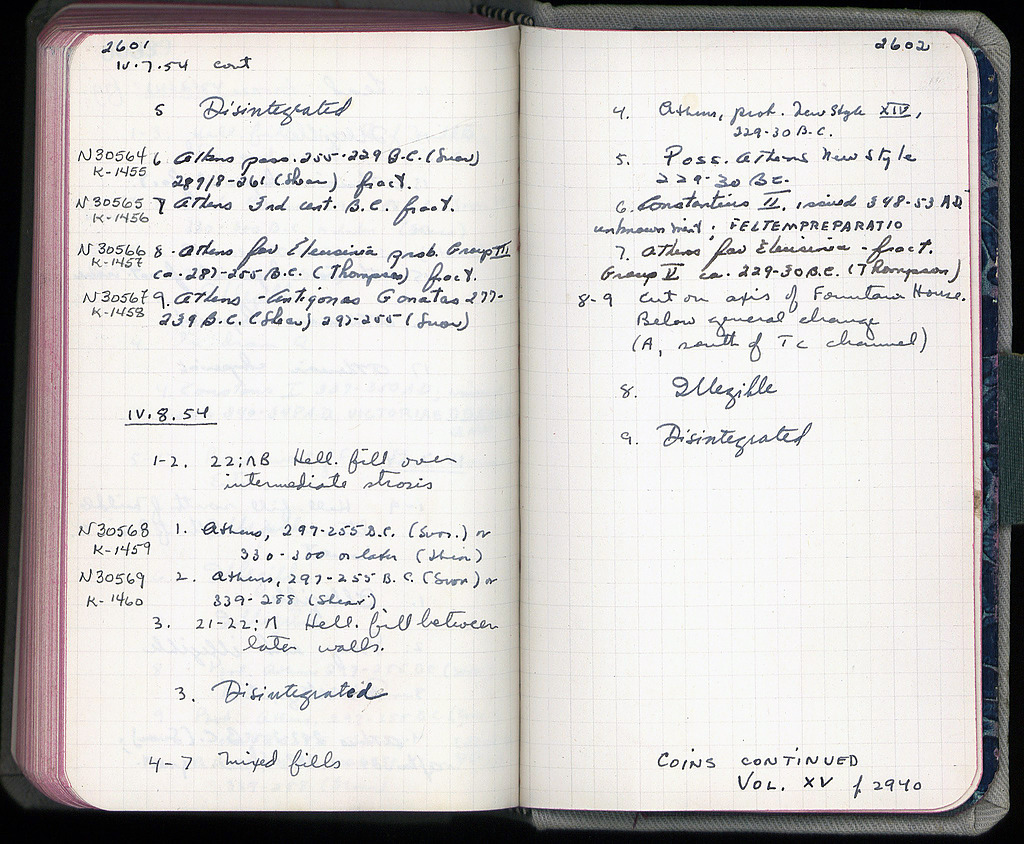 2601
IV.7.54 cont
5 Disintegrated
N30564 6. Athens poss. 255-229 B.C. (Svor)
K-1455 289/8-261 (Shear) fract.
N30565 7 Athens 3rd cent. B.C. fract.
K-1456
N30566 8. Athens for Eleusinia prob. Group III
K-1457 ca. 287-255 B.C. (Thompson) fract.
N30567 9. Athens - Antigonas Gonatas 277-
K-1458 239 B.C. (Shear) 297-255 (Svor)
IV.8.54
1-2. 22:ΛB Hell. fill over
intermediate strosis
N30568 1. Athens, 297-255 B.C. (Svor.) or
K-1459 330-300 or later (Shear)
N30569 2. Athens, 297-255 B.C. (Svor) or
K-1460 339-288 (Shear)
3. 21-22:Λ Hell. fill between
later walls.
3. Disintegrated
4-7 mixed fills
2602
4. Athens, prob. New Style XIV,
229-30 B.C.
5. Poss. Athens New Style
229-30 BC.
6. Constantius II, issued 348-53 AD
unknown mint; FELTEMPREPARATIO
7. Athens for Eleusinia - fract.
Group V ca. 229-30 B.C. (Thompson)
8-9 Cut on axis of Fountain House.
Below general change
(A, south of TC channel)
8. Illegible
9. Disintegrated
COINS CONTINUED
VOL. XV p 2940